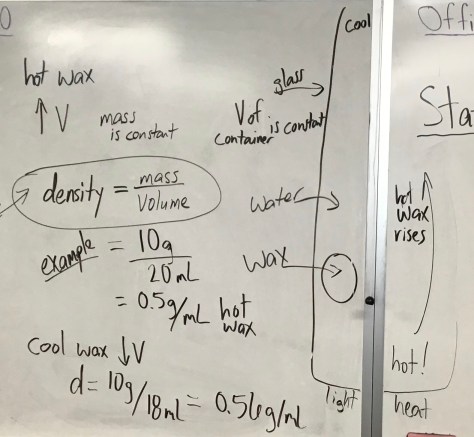 0
hot wax
↑V mass
is constant
density = mass
Volume
example = 10g
20mL
= 0.5g/mL hot
wax
Cool wax ↓V
d = 10g/18mL = 0.56g/mL
glass
V of
container is constant
water
wax
cool
light
Offi
Sta
hot
wax
rises
hot!
heat